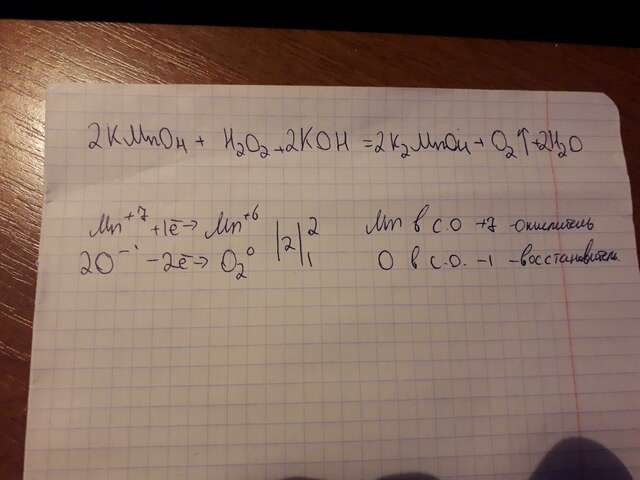 2KMnO4 + H2O2 + 2KOH = 2K2MnO4 + O2↑ + 2H2O
Mn+7 +1ē → Mn+6 |2| 2 Mn в с.о +7 -окислитель
2O-1 -2ē → O2 0 | | 1 O в с.о. -1 -восстановитель